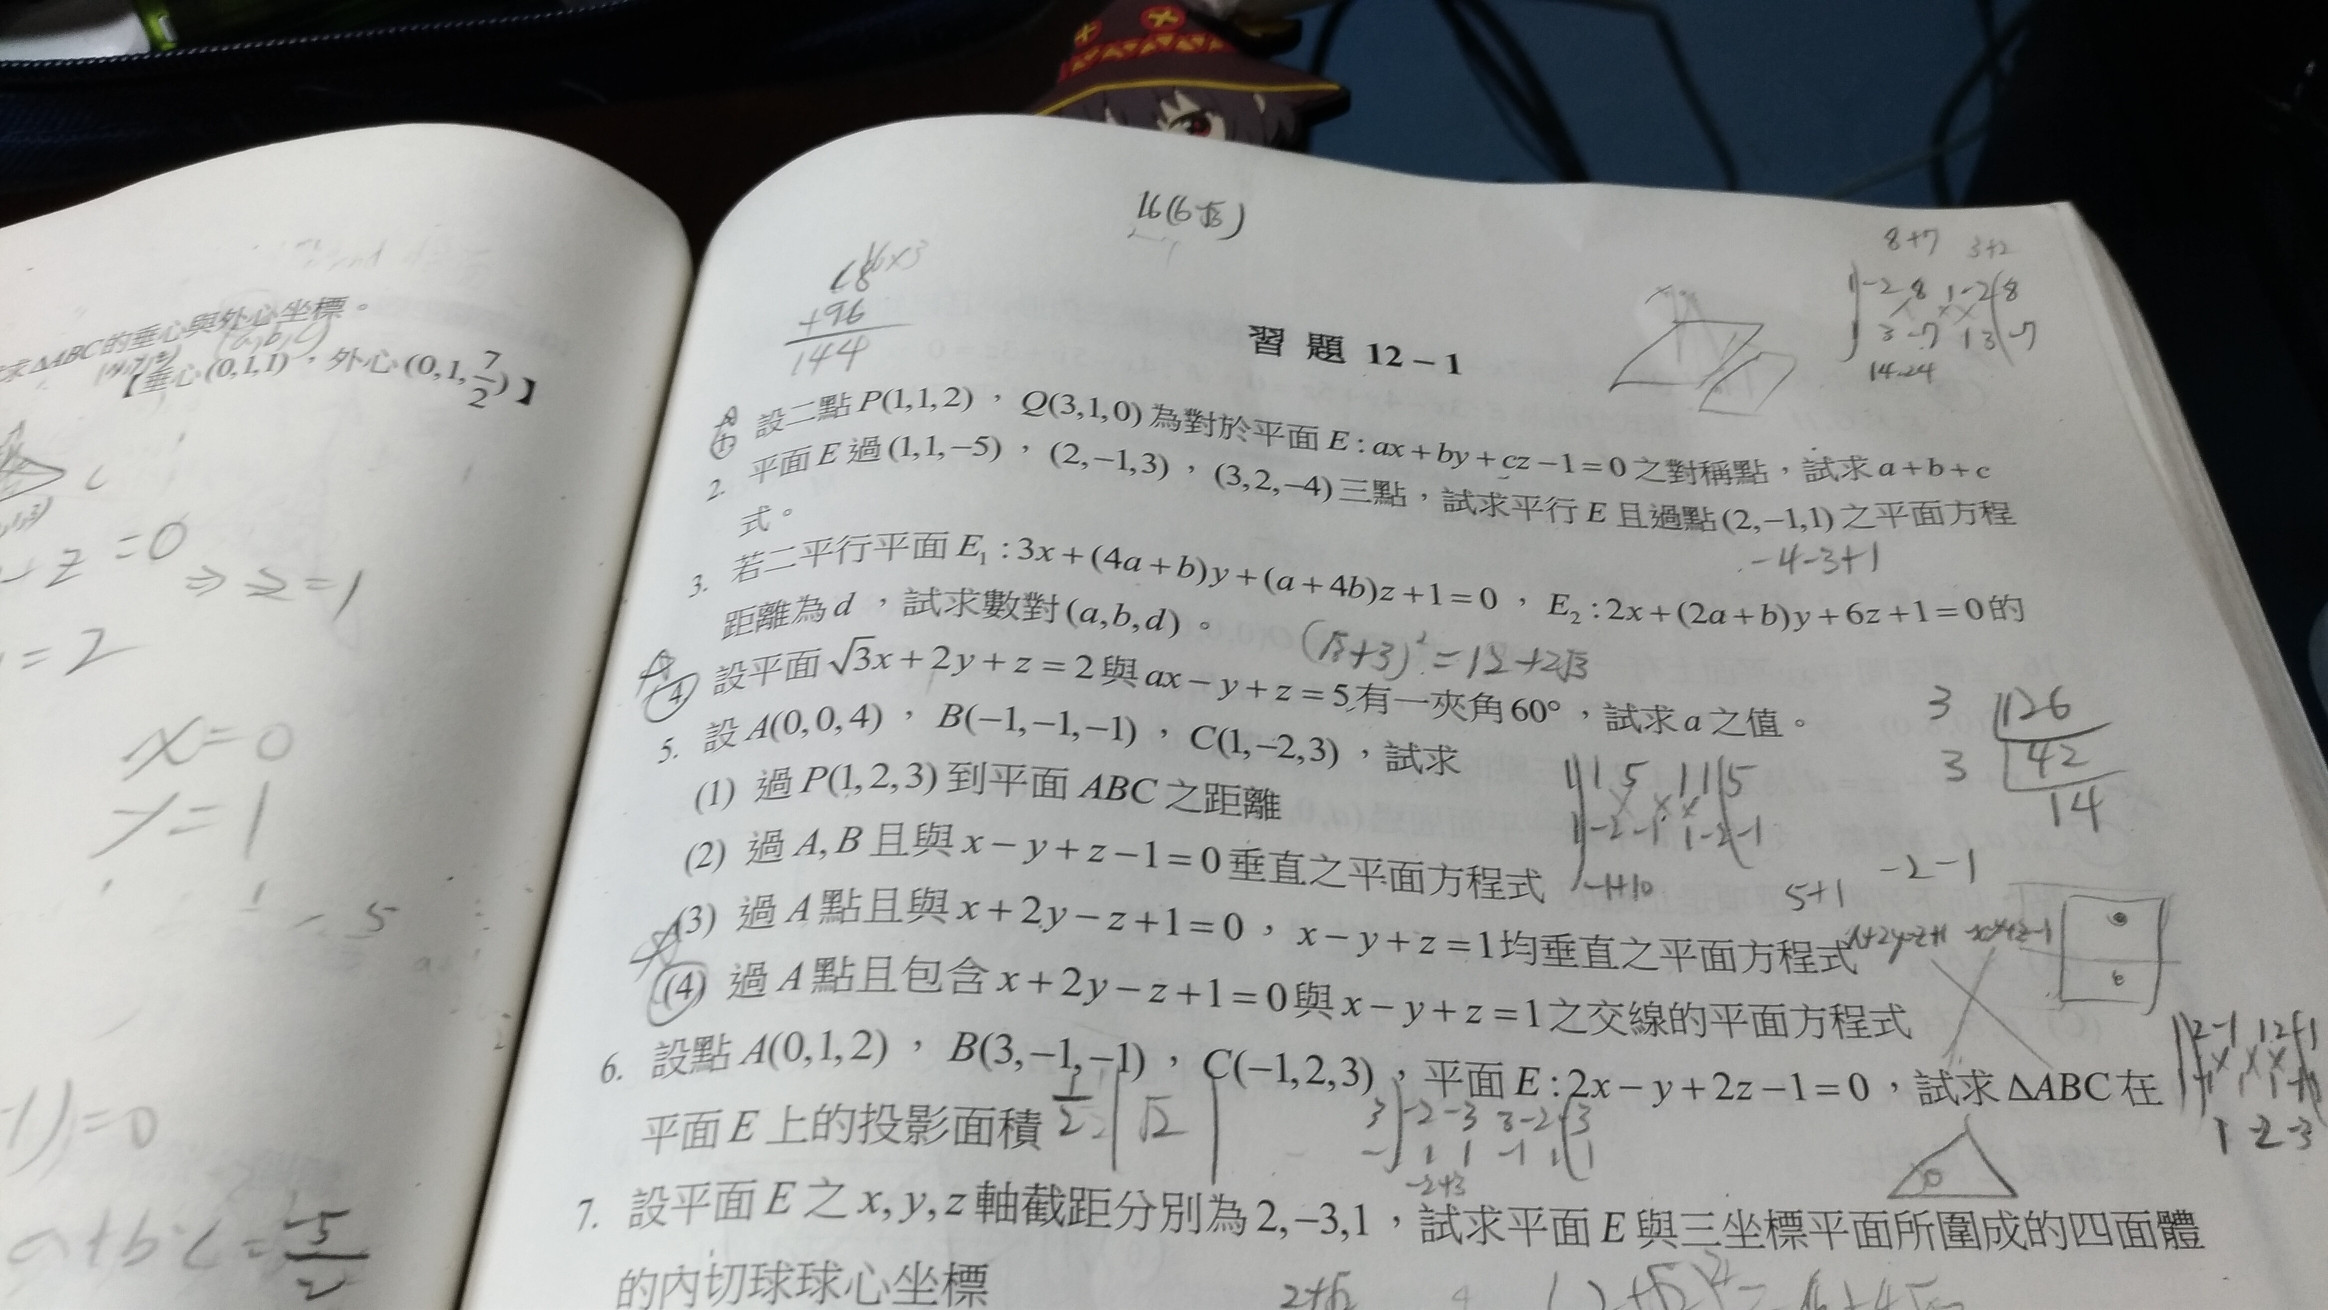 求ΔABC的垂心與外心坐標。
【垂心(0,1,1)，外心(0,1,7/2)】
z=0
⇒z=1
=2
x=0
y=1
=0
a+b+c=5/2
16(6√3)
16×3
+96
144
8+7 3+2
1|-2 8 1 -2|8
3 -7 1 3|-7
14-24
習題 12-1
設二點P(1,1,2)，Q(3,1,0)為對於平面E:ax+by+cz-1=0之對稱點，試求a+b+c
2. 平面E過(1,1,-5)，(2,-1,3)，(3,2,-4)三點，試求平行E且過點(2,-1,1)之平面方程
式。
-4-3+1
3. 若二平行平面E₁:3x+(4a+b)y+(a+4b)z+1=0，E₂:2x+(2a+b)y+6z+1=0的
距離為d，試求數對(a,b,d)。
(√3+3)²=12+2√3
4 設平面√3x+2y+z=2與ax-y+z=5有一夾角60°，試求a之值。
3 126
3 42
14
5. 設A(0,0,4)，B(-1,-1,-1)，C(1,-2,3)，試求
(1) 過P(1,2,3)到平面ABC之距離
1|1 5 1 1|5
1|-2 -1 1 -2|-1
-1+10 5+1 -2-1
(2) 過A,B且與x-y+z-1=0垂直之平面方程式
(3) 過A點且與x+2y-z+1=0，x-y+z=1均垂直之平面方程式
x+2y-z+1 x-y+z-1
(4) 過A點且包含x+2y-z+1=0與x-y+z=1之交線的平面方程式
6. 設點A(0,1,2)，B(3,-1,-1)，C(-1,2,3)，平面E:2x-y+2z-1=0，試求ΔABC在
平面E上的投影面積
1/2 |√2|
3|-2 -3 3 -2|-3
-1|1 1 -1 1|1
-2+3
1 -2 -3
7. 設平面E之x,y,z軸截距分別為2,-3,1，試求平面E與三坐標平面所圍成的四面體
的內切球球心坐標